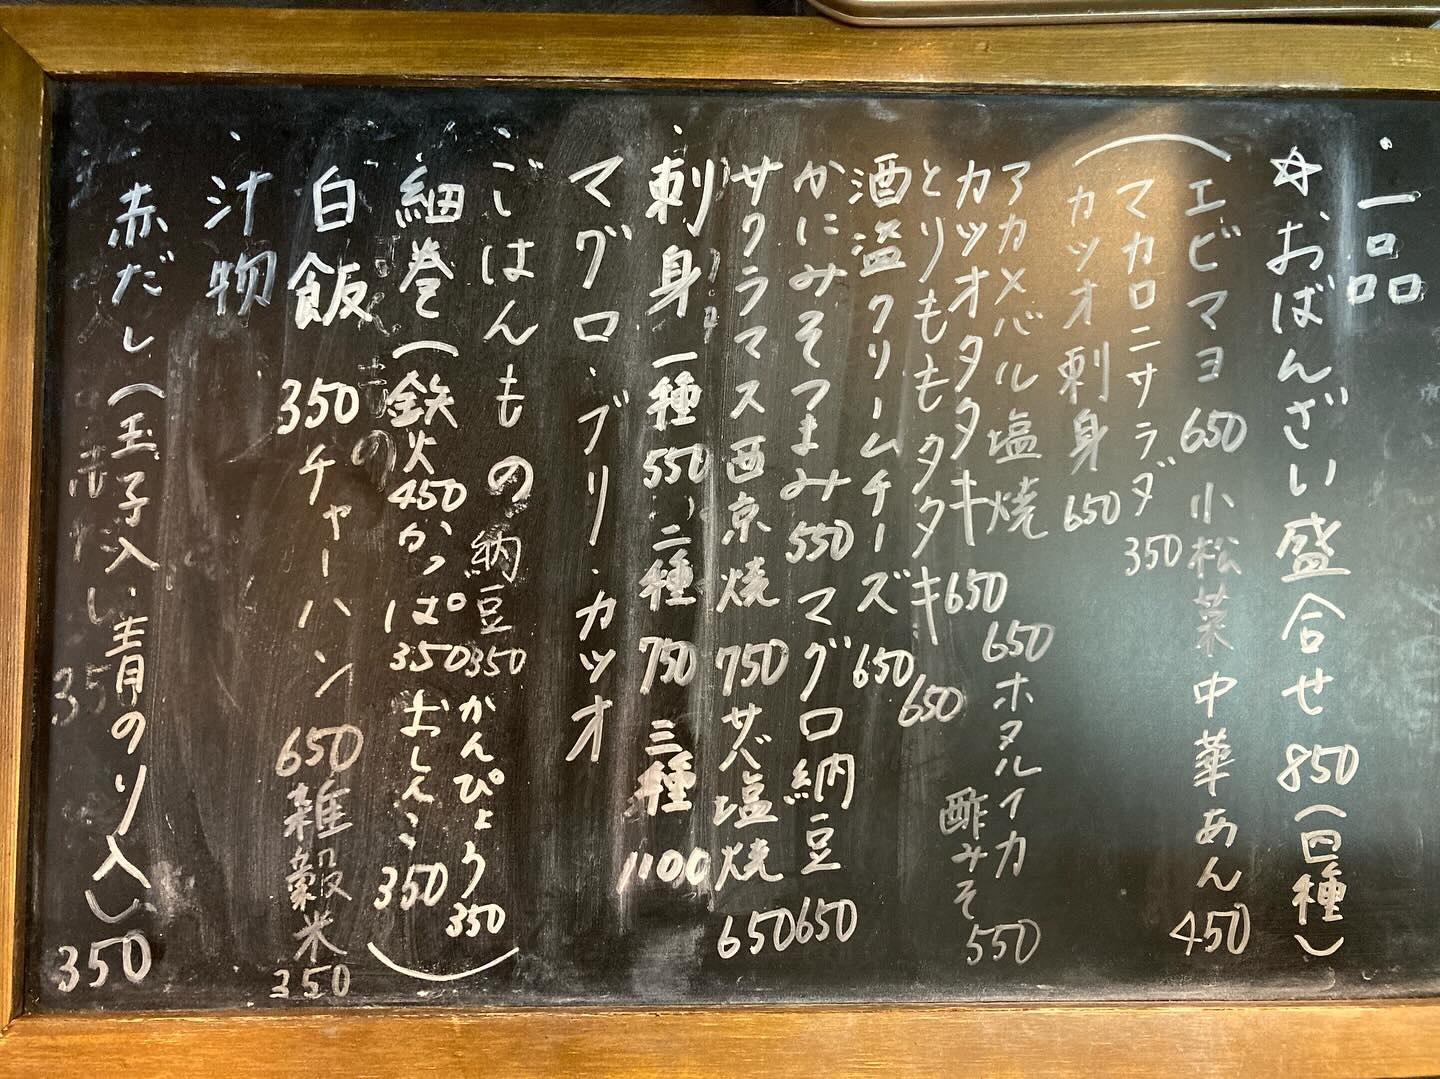 ・一品
☆おばんざい盛合せ 850(四種)
エビマヨ 650 小松菜中華あん 450
マカロニサラダ 350
カツオ刺身 650
アカメバル塩焼 650 ホタルイカ酢みそ 550
カツオタタキ 650
とりももタタキ 650
酒盗クリームチーズ 650
かにみそつまみ 550 マグロ納豆 650
サクラマス西京焼 750 サバ塩焼 650
・刺身 一種 550 二種 750 三種 1100
マグロ・ブリ・カツオ
・ごはんもの
細巻(鉄火 450 かっぱ 350 おしんこ 350
納豆 350 かんぴょう 350)
白飯 350 チャーハン 650 雑穀米 350
・汁物
赤だし(玉子入・青のり入) 350